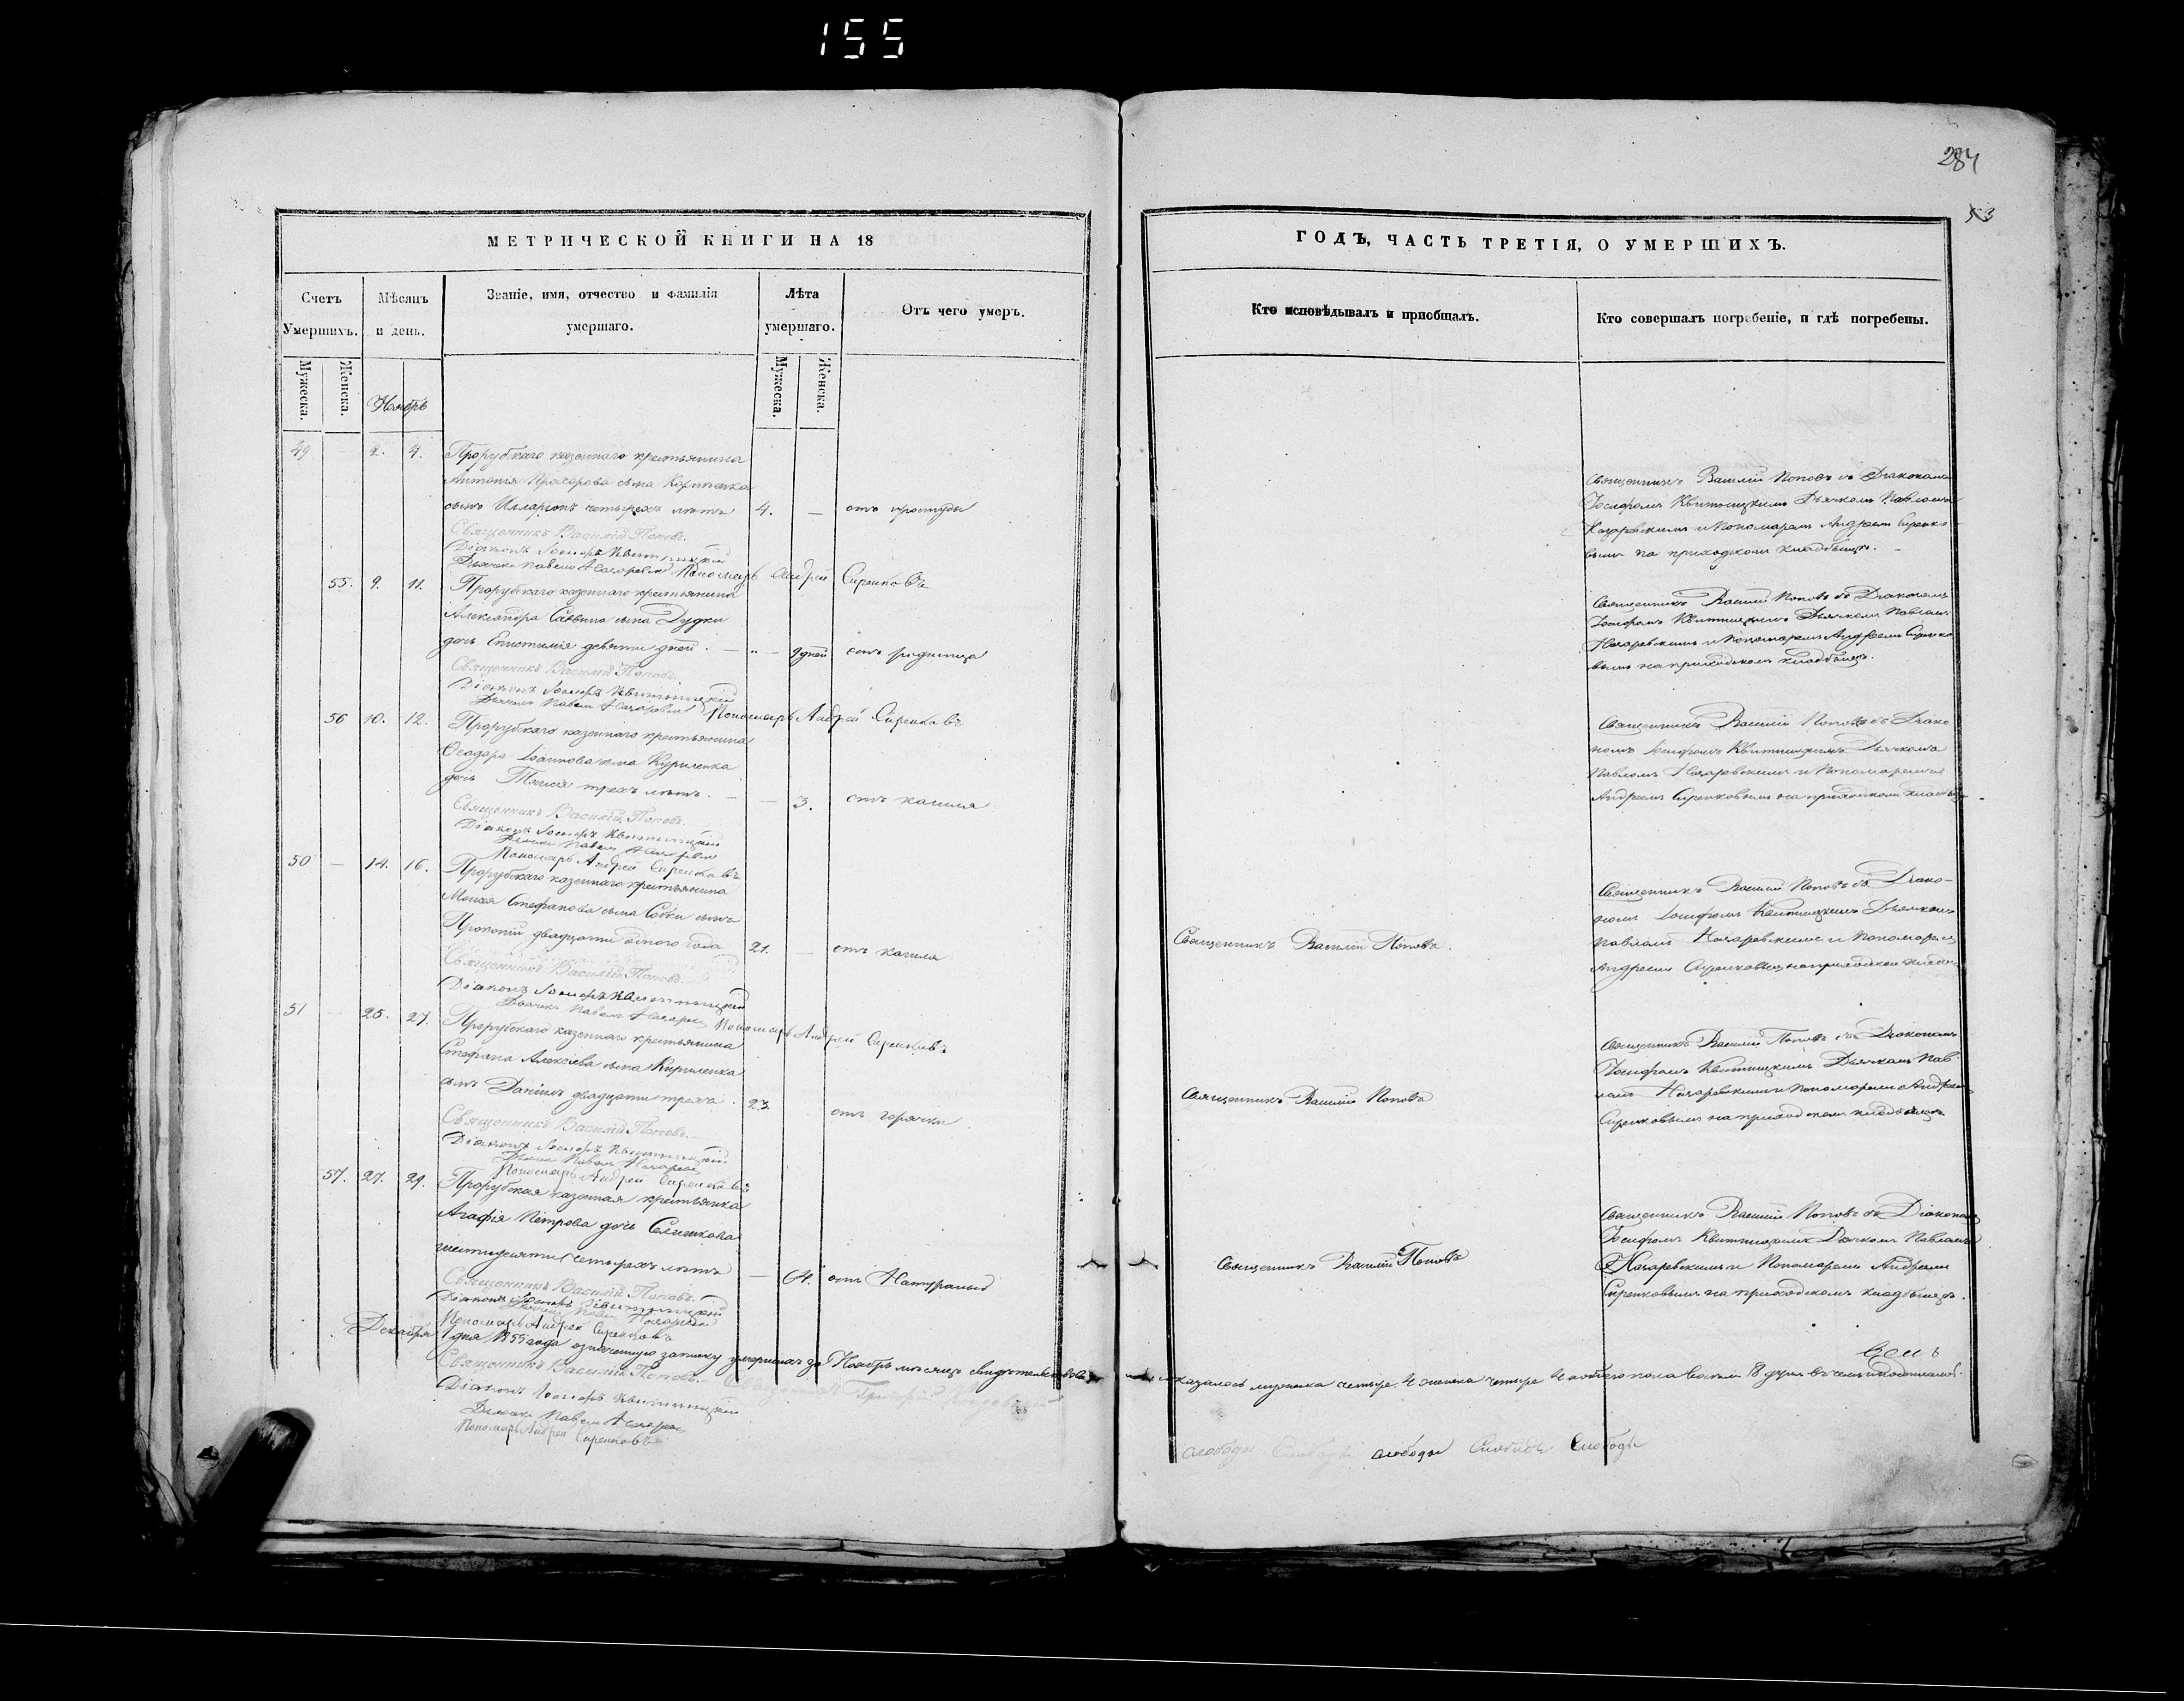 155
284
53
МЕТРИЧЕСКОЙ КНИГИ НА 18
Счетъ Умершихъ.
Мѣсяцъ и день.
Званіе, имя, отчество и фамилія умершаго.
Лѣта умершаго.
Отъ чего умеръ.
Мужеска.
Женска.
Ноябрь
Мужеска.
Женска.
49 — 2. 4. Прорубскаго казеннаго крестьянина
Антонія Прохорова сына
сынъ Илларіонъ четырехъ лѣтъ 4. — отъ простуды
Священникъ Василій Поповъ.
Діаконъ Іосифъ Квитницкій
Дьячокъ Павелъ Назаревскій Пономарь Андрей Сиренковъ
55. 9. 11. Прорубскаго казеннаго крестьянина
Александра Саввина сына Дудки
дочь Епистимія девяти дней. — 9 дней отъ родимца
Священникъ Василій Поповъ.
Діаконъ Іосифъ Квитницкій
Дьячокъ Павелъ Назаревскій Пономарь Андрей Сиренковъ
56 10. 12. Прорубскаго казеннаго крестьянина
Ѳеодора Іоаннова сына Куриленка
дочь Таисія трехъ лѣтъ. — — 3. отъ кашля
Священникъ Василій Поповъ.
Діаконъ Іосифъ Квитницкій
Дьячокъ Павелъ
Пономарь Андрей Сиренковъ
50 — 14. 16. Прорубскаго казеннаго крестьянина
Моисея Стефанова сына Собки сынъ
Прокопій двадцати одного года 21. — отъ кашля
Священникъ Василій Поповъ.
Діаконъ Іосифъ Квитницкій
Дьячокъ Павелъ Пономарь Андрей Сиренковъ
51 — 25. 27. Прорубскаго казеннаго крестьянина
Стефана Алексіева сына Кириленка
сынъ Даніилъ двадцати трехъ. 23. отъ горячки
Священникъ Василій Поповъ.
Діаконъ Іосифъ Квитницкій
Дьячокъ Павелъ
Пономарь Андрей Сиренковъ
57. 27. 29. Прорубская казенная крестьянка
Агафія Петрова дочь
шестидесяти четырехъ лѣтъ — 64. отъ Натуральной
Священникъ Василій Поповъ.
Діаконъ Іосифъ Квитницкій
Пономарь Андрей Сиренковъ
Декабря 1 дня 1855 года означенную записку умершихъ за Ноябрь мѣсяцъ
Священникъ Василій Поповъ.
Діаконъ Іосифъ Квитницкій
Дьячокъ Павелъ
Пономарь Андрей Сиренковъ
ГОДЪ, ЧАСТЬ ТРЕТІЯ, О УМЕРШИХЪ.
Кто исповѣдывалъ и пріобщалъ.
Кто совершалъ погребеніе, и гдѣ погребены.
Священникъ Василій Поповъ съ Діакономъ
Іосифомъ Квитницкимъ Дьячкомъ Павломъ
Назаревскимъ и Пономаремъ Андреемъ Сиренко-
вымъ на приходскомъ кладбищѣ.
Священникъ Василій Поповъ съ Діакономъ
Іосифомъ Квитницкимъ Дьячкомъ Павломъ
Назаревскимъ и Пономаремъ Андреемъ Сиренко
вымъ на приходскомъ кладбищѣ.
Священникъ Василій Поповъ съ Діако
номъ Іосифомъ Квитницкимъ Дьячкомъ
Павломъ Назаревскимъ и Пономаремъ
Андреемъ Сиренковымъ на приходскомъ кладбищѣ.
Священникъ Василій Поповъ.
Священникъ Василій Поповъ съ Діако-
номъ Іосифомъ Квитницкимъ Дьячкомъ
Павломъ Назаревскимъ и Пономаремъ
Андреемъ Сиренковымъ на приходскомъ кладбищѣ
Священникъ Василій Поповъ
Священникъ Василій Поповъ съ Діакономъ
Іосифомъ Квитницкимъ Дьячкомъ Пав-
ломъ Назаревскимъ и Пономаремъ Андреемъ
Сиренковымъ на приходскомъ кладбищѣ
Священникъ Василій Поповъ
Священникъ Василій Поповъ съ Діакономъ
Іосифомъ Квитницкимъ Дьячкомъ Павломъ
Назаревскимъ и Пономаремъ Андреемъ
Сиренковымъ на приходскомъ кладбищѣ.
оказалось мужеска четыре 4 женска четыре 4 обоего пола восемь 8 душъ въ чемъ
слободы Слободы слободы Слободы Слободы